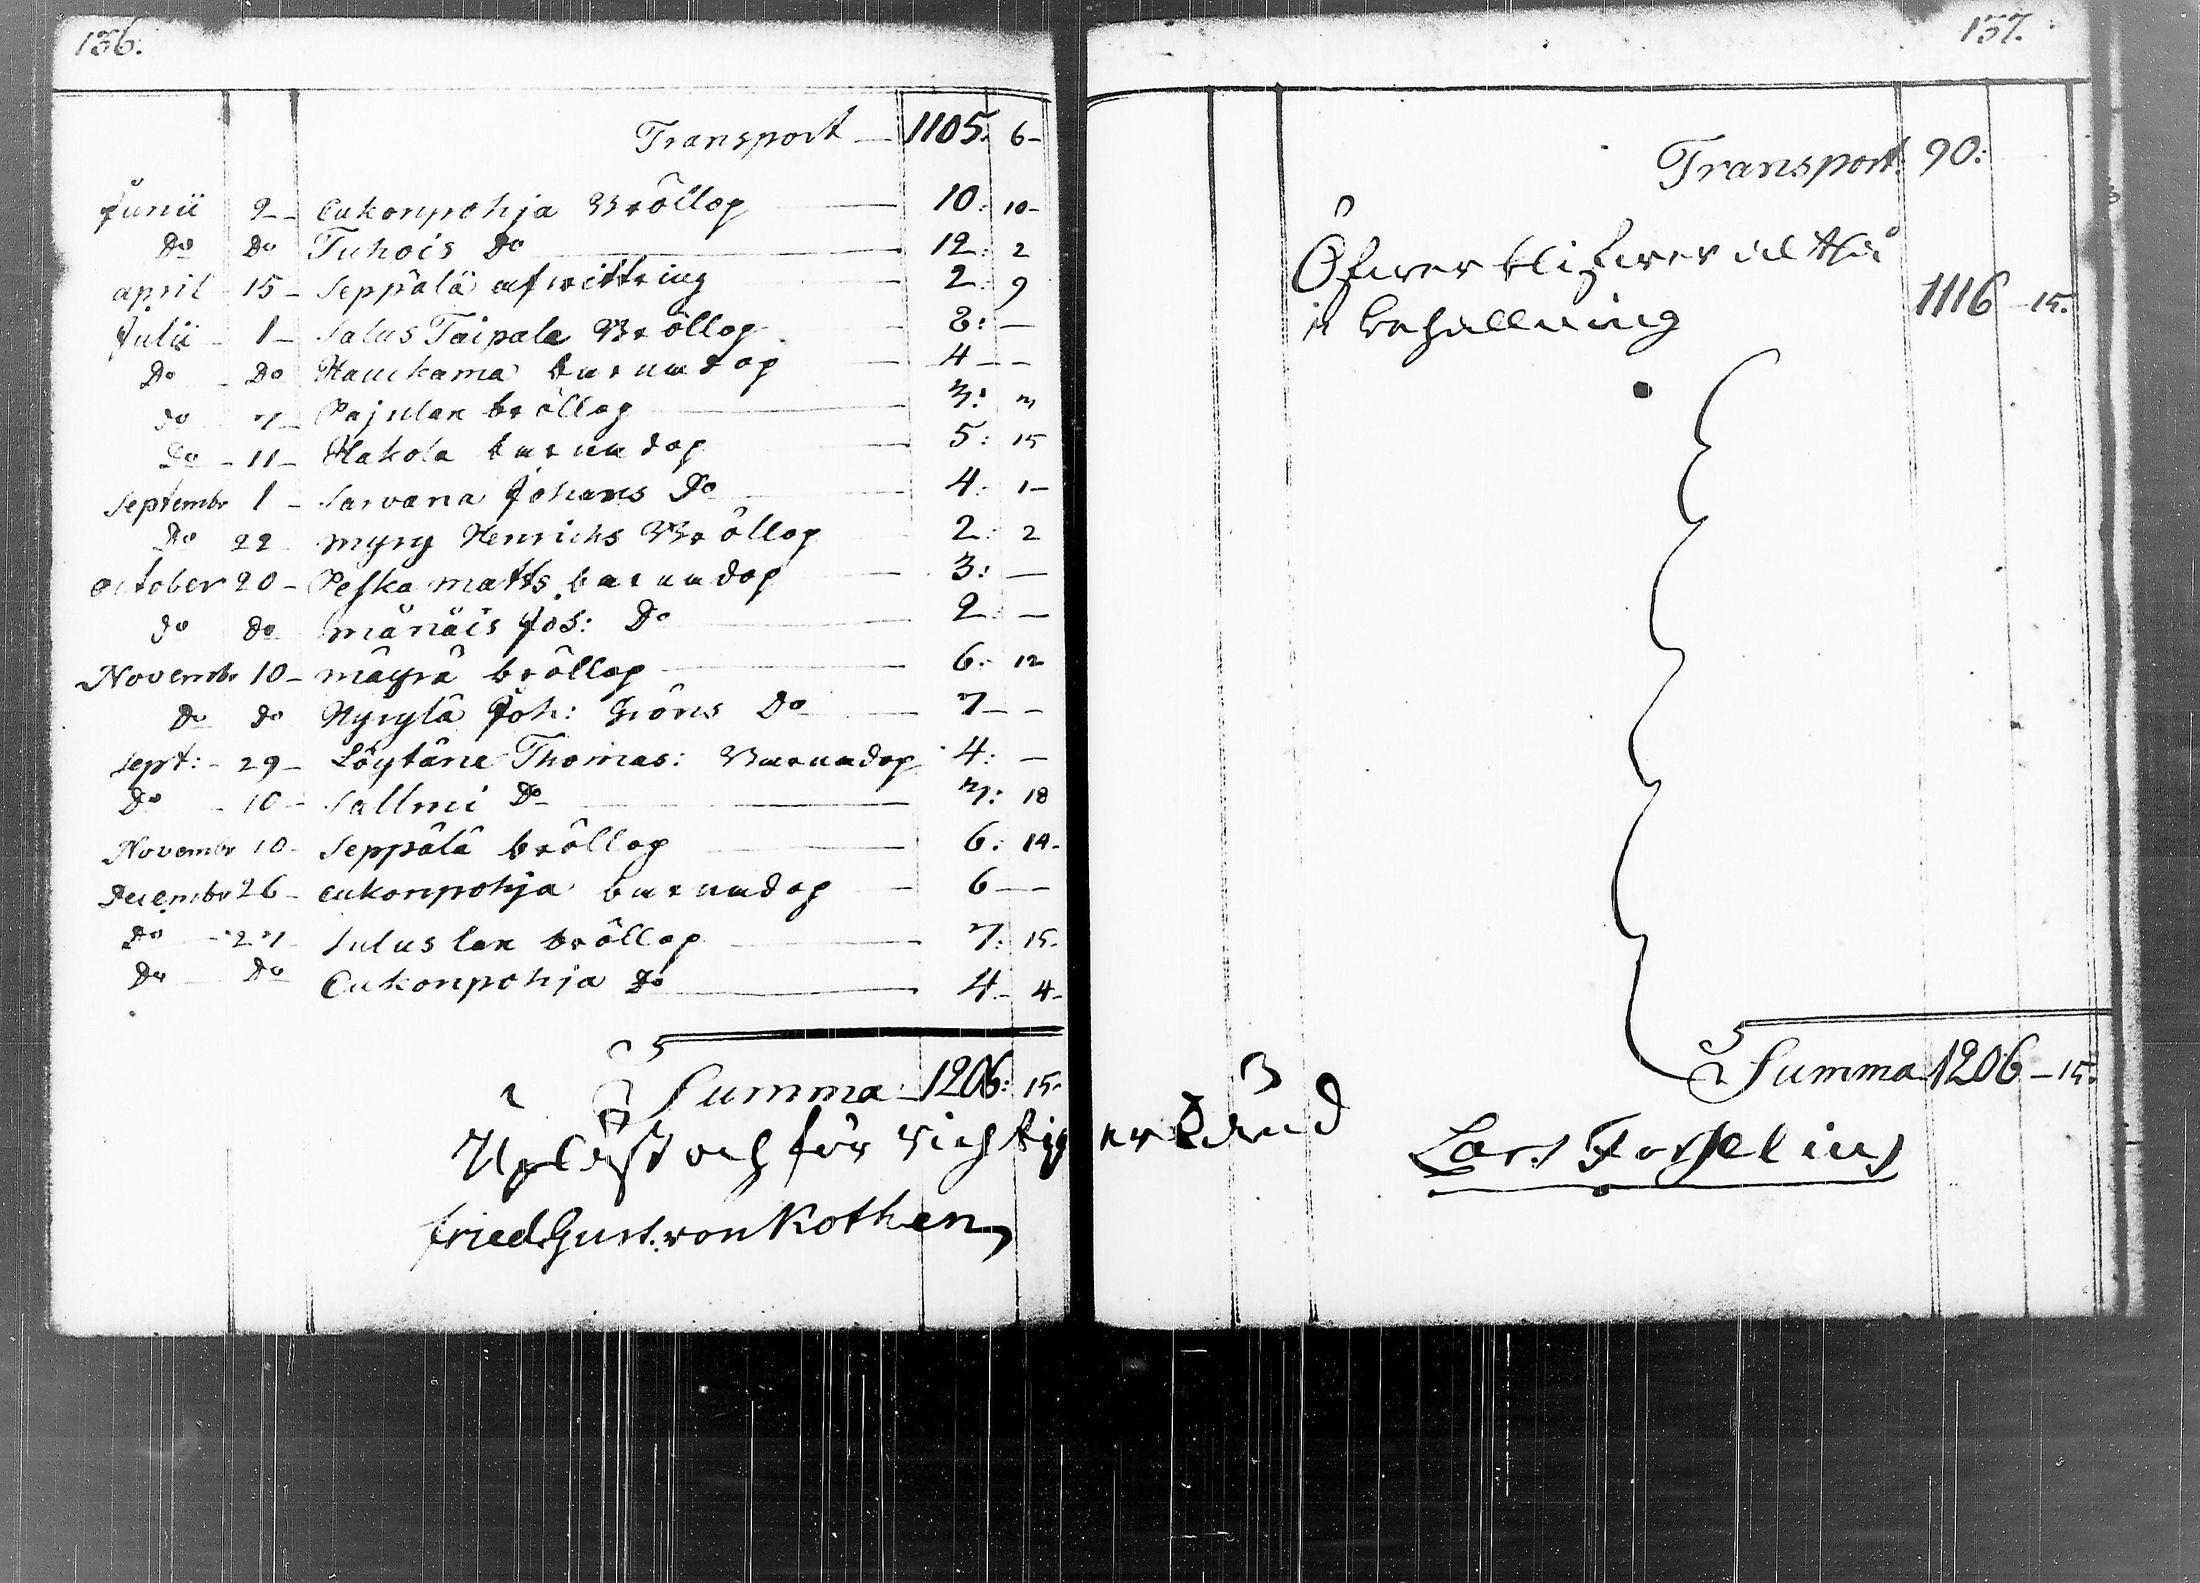 156.
Transport 1105. 6
Junii 9 Eukonpohja Bröllop 10: 10
Do Do Tuhois Do 12: 2
april 15 Seppälä afwittring 2: 9
Julii 1 Salus Taipale Bröllop 8: —
Do Do Haukama barndop 4 —
do 7 Pajulax bröllop 3: 3
Do 11 Hakola barndop 5: 15
Septembr 1 Sarvana Johans Do 4: 1
Do 22 myry Henrichs Bröllop 2: 2
October 20 Peska matts barndop 3: —
do do mänäis Jos: Do 2: —
Novembr 10 mäyrä bröllop 6: 12
Do do Hyrylä Joh: Jöns Do 7 —
Sept: 29 Löytäne Thomas: Barndop 4: —
Do 10 Sallmi Do 7: 18
Novembr 10 Seppälä bröllop 6: 14
Decembr 26 eukonpohja barndop 6 —
Do 27 Suluslax bröllop 7: 15
Do Do Eukonpohja Do 4 4
Summa 1206: 15
Uplæst och för richtig erkänd
Fried Gust. von Kothen
157.
Transport: 90:
Öfwerblifwer altså
i behållning 1116 15.
Summa 1206 15.
Lars Forselius